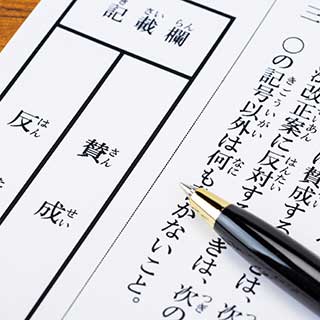 三
は賛成する
きは、次の
法改正案に反対する
きは、次の
〇の記号以外は何も
かないこと。
記載欄
賛成
反